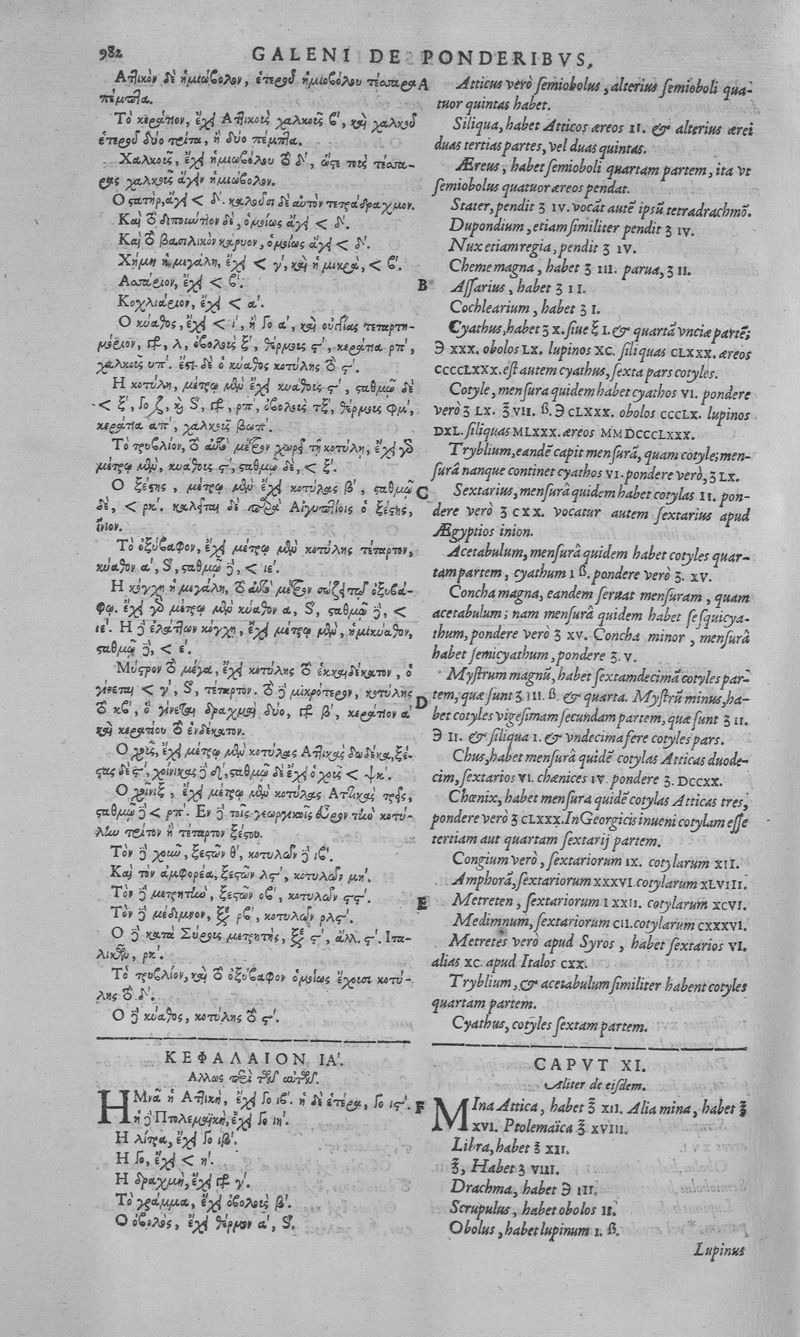 982 GALENI DE PONDERIBVS,
Ἀττικὸν δὲ ἡμιώβολον, ἑτέρου ἡμιοβόλου τέσσαρα
πέμπτα.
Τὸ κεράτιον, ἔχει Ἀττικοὺς χαλκοῦς β', καὶ χαλκοῦ
ἑτέρου δύο τρίτα, ἢ δύο πέμπτα.
Χαλκοῦς, ἔχει ἡμιωβόλου τὸ δ', ὥστε τοὺς τέσσα-
ρας χαλκοῦς ἄγειν ἡμιώβολον.
Ὁ στατὴρ, ἄγει < δ'. καλοῦσι δὲ αὐτὸν τετράδραχμον.
Καὶ τὸ διπούντιον δὲ, ὁμοίως ἄγει < δ'.
Καὶ τὸ βασιλικὸν κάρυον, ὁμοίως ἄγει < δ'.
Χήμη ἡ μεγάλη, ἔχει < γ', καὶ ἡ μικρὰ, < β'.
Ἀσσάριον, ἔχει < β'.
Κοχλιάριον, ἔχει < α'.
Ὁ κύαθος, ἔχει < ι', ἢ γο α', καὶ οὐγγίας τεταρτη-
χαλκοῦς υπ'. ἔστι δὲ ὁ κύαθος κοτύλης τὸ ϛ'.
Ἡ κοτύλη, μέτρῳ μὲν ἔχει κυάθους ϛ', σταθμῷ δὲ
κεράτια απ', χαλκοῦς βωπ'.
Τὸ τρυβλίον, τὸ αὐτὸ μέτρον χωρεῖ τῇ κοτύλῃ, ἔχει γὰρ
μέτρῳ μὲν, κυάθους ϛ', σταθμῷ δὲ, < ξ'.
Ὁ ξέστης, μέτρῳ μὲν ἔχει κοτύλας β', σταθμῷ
δὲ, < ρκ'. καλεῖται δὲ παρὰ Αἰγυπτίοις ὁ ξέστης,
ἴνιον.
Τὸ ὀξύβαφον, ἔχει μέτρῳ μὲν κοτύλης τέταρτον,
κύαθον α', S', σταθμῷ δὲ, < ιε'.
Ἡ κόγχη ἡ μεγάλη, τὸ αὐτὸ μέτρον σώζει τῷ ὀξυβά-
φῳ. ἔχει γὰρ μέτρῳ μὲν κύαθον α, S', σταθμῷ δὲ, <
ιε'. Ἡ δὲ ἐλάττων κόγχη, ἔχει μέτρῳ μὲν, ἡμικύαθον,
σταθμῷ δὲ, < ε'.
Μύστρον τὸ μέγα, ἔχει κοτύλης τὸ ἑκκαιδέκατον, ὃ
γίνεται < γ', S', τέταρτον. τὸ δὲ μικρότερον, κοτύλης
τὸ κβ', ὃ γίνεται δραχμαὶ δύο, β', κεράτιον α'
καὶ κερατίου τὸ ἑνδέκατον.
Ὁ χοῦς, ἔχει μέτρῳ μὲν κοτύλας Ἀττικὰς δώδεκα, ξέ-
στας δὲ ϛ', χοίνικας δὲ δ', σταθμῷ δὲ ἔχει ὁ χοῦς < ψκ'.
Ὁ χοῖνιξ, ἔχει μέτρῳ μὲν κοτύλας Ἀττικὰς τρεῖς,
σταθμῷ δὲ < ρπ'. Ἐν δὲ τοῖς γεωργικοῖς εὗρον τὴν κοτύ-
λην τρίτον ἢ τέταρτον ξέστου.
Τὸν δὲ χοῦν, ξεστῶν θ', κοτυλῶν δὲ ιβ'.
Καὶ τὸν ἀμφορέα, ξεστῶν λϛ', κοτυλῶν μη'.
Τὸν δὲ μετρητὴν, ξεστῶν οβ', κοτυλῶν ϟϛ'.
Τὸν δὲ μέδιμνον, ξε ρβ', κοτυλῶν ρλϛ'.
Ὁ δὲ κατὰ Σύρους μετρητὴς, ξε ϟ', ἄλλ. ϟ'. Ἰτα-
λικὸν, ρκ'.
Τὸ τρυβλίον, καὶ τὸ ὀξύβαφον ὁμοίως ἔχουσι κοτύ-
λης τὸ δ'.
Ὁ δὲ κύαθος, κοτύλης τὸ ϛ'.
ΚΕΦΑΛΑΙΟΝ ΙΑ'.
Ἄλλως περὶ τῶν αὐτῶν.
Ἡ Μνᾶ ἡ Ἀττικὴ, ἔχει γο ιβ'. ἡ δὲ ἑτέρα, γο ιϛ'.
ἡ δὲ Πτολεμαϊκὴ, ἔχει γο ιη'.
Ἡ λίτρα, ἔχει γο ιβ'.
Ἡ γο, ἔχει < η'.
Ἡ δραχμὴ, ἔχει γρ γ'.
Τὸ γράμμα, ἔχει ὀβολοὺς β'.
Ὁ ὀβολὸς, ἔχει θέρμον α', S'.
A
B
C
D
E
F
Atticus verò semiobolus, alterius semioboli qua-
tuor quintas habet.
Siliqua, habet Atticos æreos II. & alterius ærei
duas tertias partes, vel duas quintas.
Æreus, habet semioboli quartam partem, ita vt
semiobolus quatuor æreos pendat.
Stater, pendit ʒ IV. vocāt autē ipsū tetradrachmō.
Dupondium, etiam similiter pendit ʒ IV.
Nux etiam regia, pendit ʒ IV.
Cheme magna, habet ʒ III. parua, ʒ II.
Assarius, habet ʒ II.
Cochlearium, habet ʒ I.
Cyathus, habet ʒ X. siue ℥ I. & quartā vnciæ partē;
℈ XXX. obolos LX. lupinos XC. siliquas CLXXX. æreos
CCCCLXXX. est autem cyathus, sexta pars cotyles.
Cotyle, mensura quidem habet cyathos VI. pondere
verò ʒ LX. ℥ VII. ß. ℈ CLXXX. obolos CCCLX. lupinos
DXL. siliquas MLXXX. æreos MMDCCCLXXX.
Tryblium, eandē capit mensurā, quam cotyle; men-
surā nanque continet cyathos VI. pondere verò, ʒ LX.
Sextarius, mensurâ quidem habet cotylas II. pon-
dere verò ʒ CXX. vocatur autem sextarius apud
Ægyptios inion.
Acetabulum, mensurâ quidem habet cotyles quar-
tam partem, cyathum I ß. pondere verò ʒ. XV.
Concha magna, eandem seruat mensuram, quam
acetabulum; nam mensurâ quidem habet sesquicya-
thum, pondere verò ʒ XV. Concha minor, mensurâ
habet semicyathum, pondere ʒ. V.
Mystrum magnū, habet sextamdecimā cotyles par-
tem, quæ sunt ʒ III. ß. & quarta. Mystrū minus, ha-
bet cotyles vigesimam secundam partem, quæ sunt ʒ II.
℈ II. & siliqua I. & vndecima fere cotyles pars.
Chus, habet mensurâ quidē cotylas Atticas duode-
cim, sextarios VI. chœnices IV. pondere ʒ. DCCXX.
Chœnix, habet mensura quidē cotylas Atticas tres,
pondere verò ʒ CLXXX. In Georgicis inueni cotylam esse
tertiam aut quartam sextarij partem.
Congium verò, sextariorum IX. cotylarum XII.
Amphorā, sextariorum XXXVI. cotylarum XLVIII.
Metreten, sextariorum LXXII. cotylarum XCVI.
Medimnum, sextariorum CII. cotylarum CXXXVI.
Metretes verò apud Syros, habet sextarios VI.
alias XC. apud Italos CXX.
Tryblium, & acetabulum similiter habent cotyles
quartam partem.
Cyathus, cotyles sextam partem.
CAPVT XI.
Aliter de eisdem.
MIna Attica, habet ℥ XII. Alia mina, habet ℥
XVI. Ptolemaïca ℥ XVIII.
Libra, habet ℥ XII.
℥, Habet ʒ VIII.
Drachma, habet ℈ III.
Scrupulus, habet obolos II.
Obolus, habet lupinum I. ß.
Lupinus